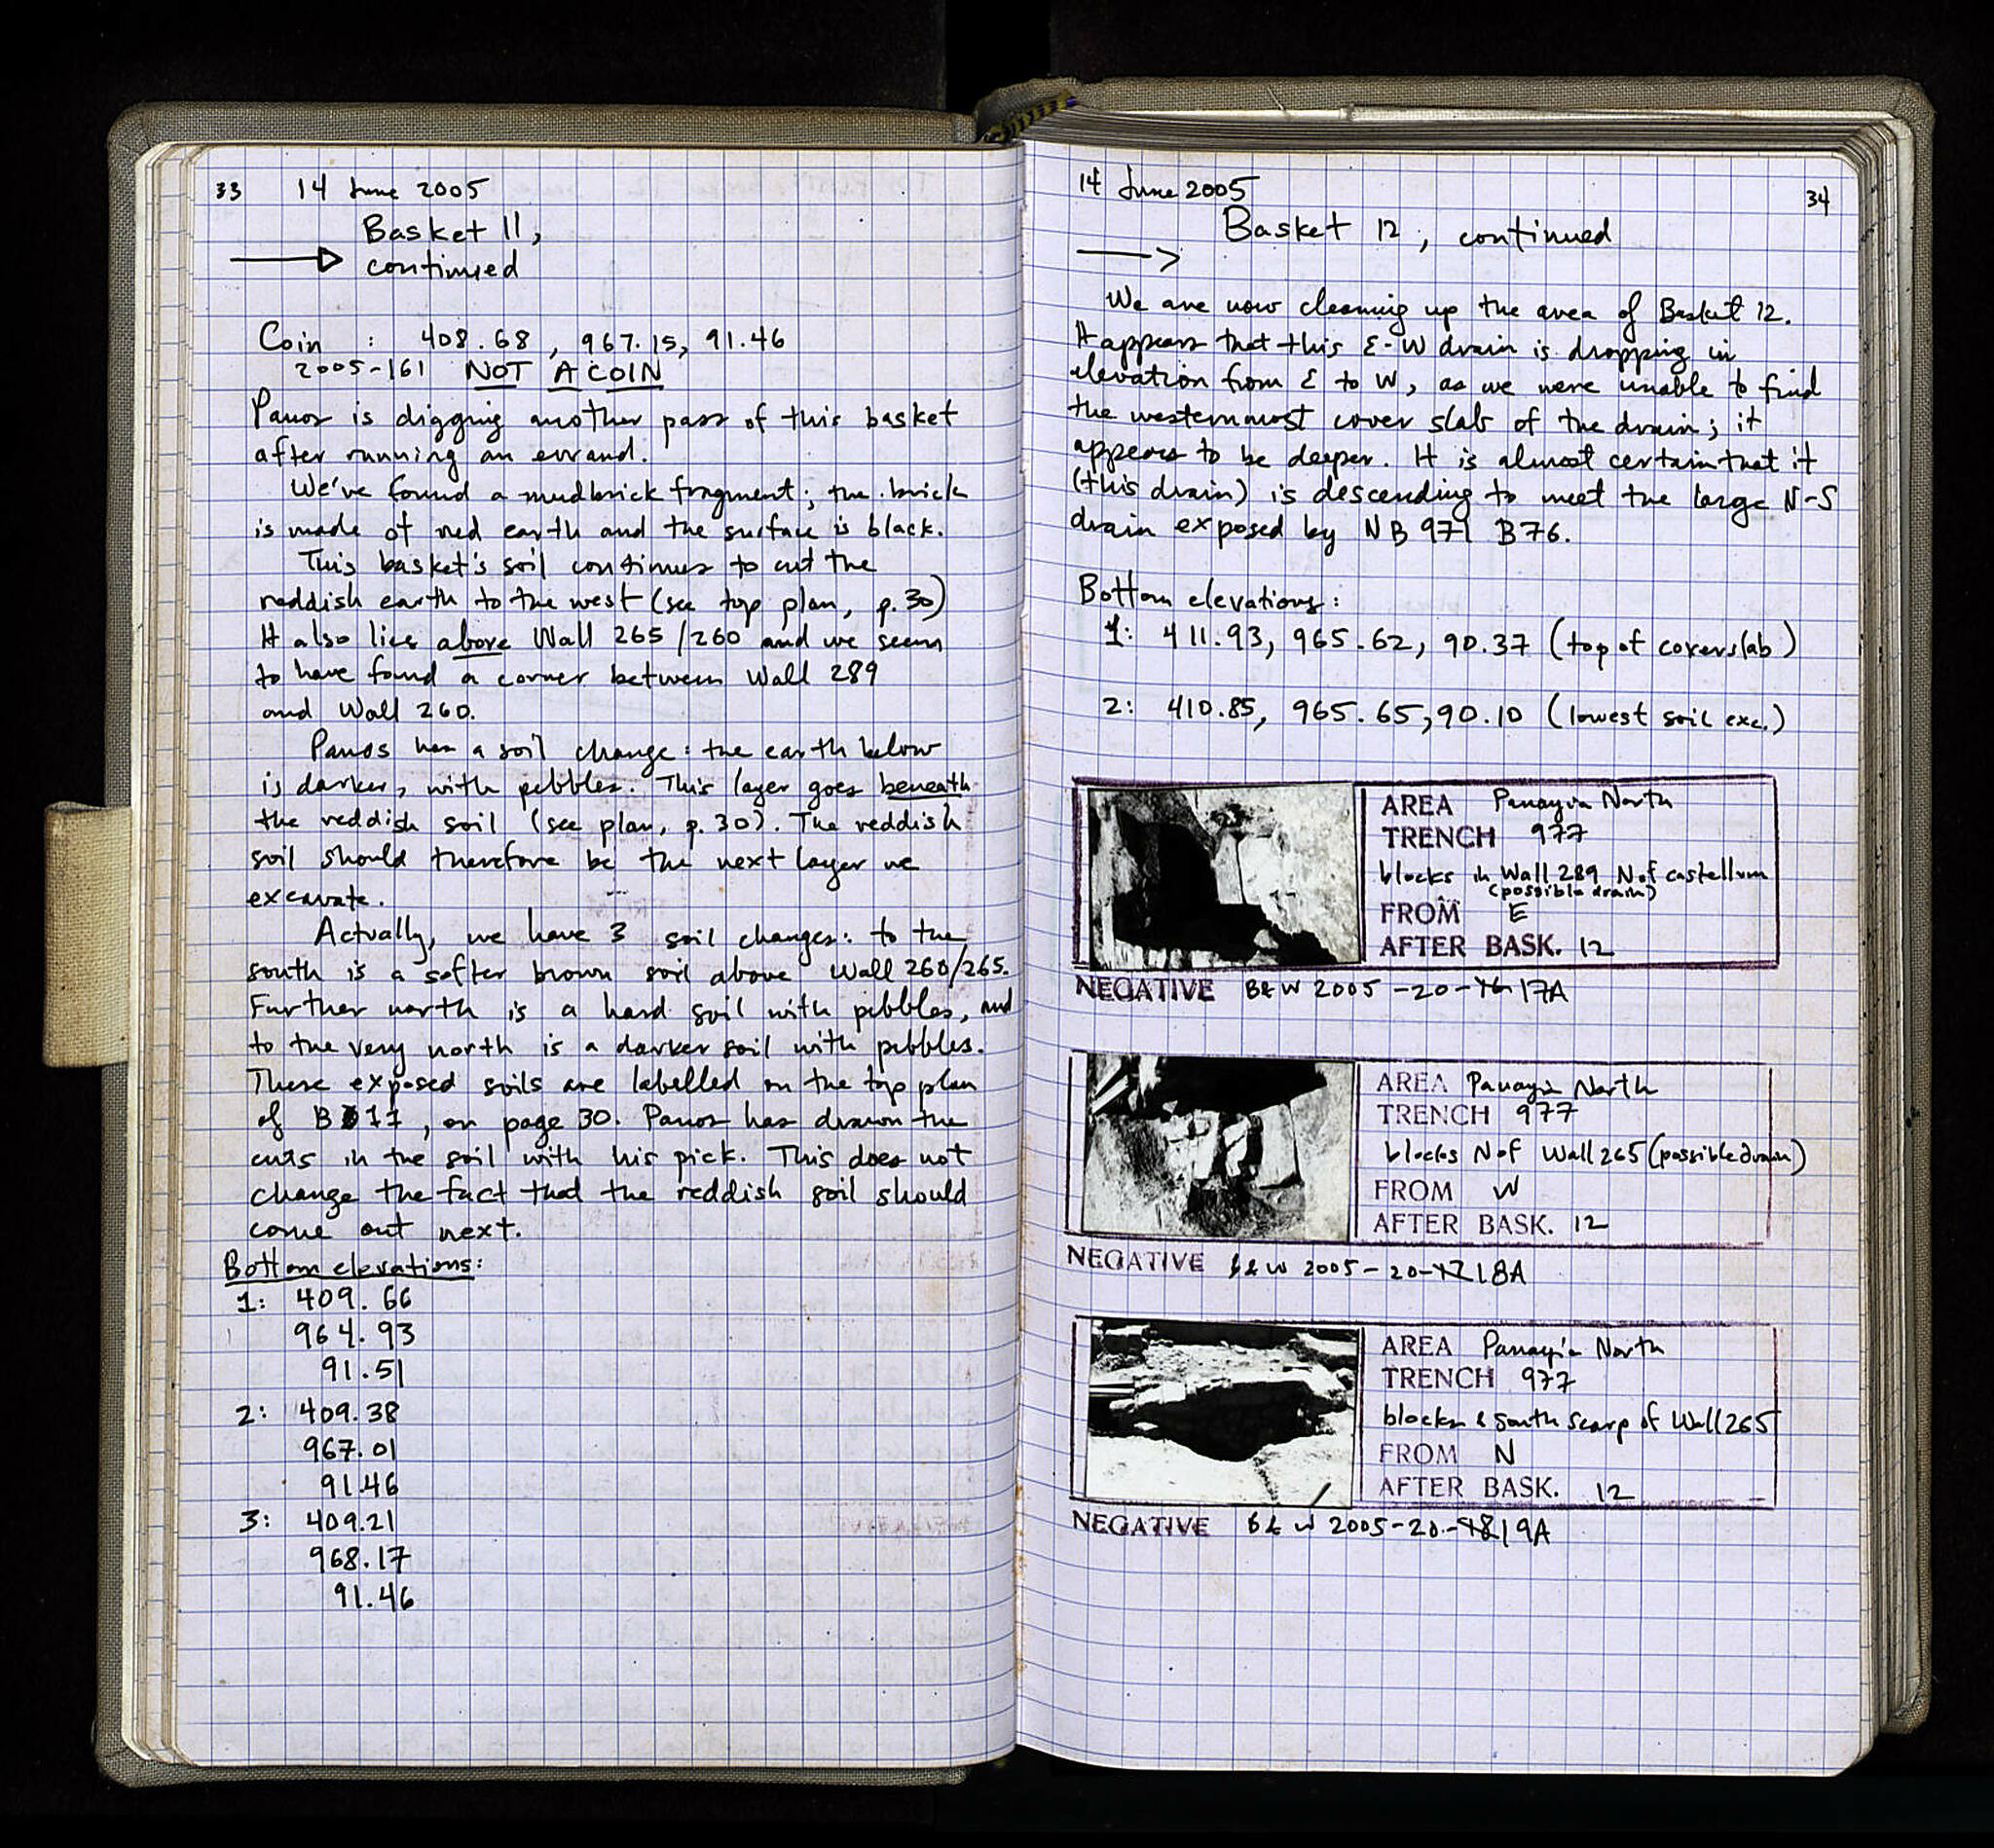 33 14 June 2005
Basket 11,
continued
Coin : 408.68, 967.15, 91.46
2005-161 NOT A COIN
Panos is digging another pass of this basket
after running an errand.
We've found a mudbrick fragment; the brick
is made of red earth and the surface is black.
This basket's soil continues to cut the
reddish earth to the west (see top plan, p.30)
It also lies above Wall 265/260 and we seem
to have found a corner between Wall 289
and Wall 260.
Panos has a soil change: the earth below
is darker, with pebbles. This layer goes beneath
the reddish soil (see plan, p.30). The reddish
soil should therefore be the next layer we
excavate.
Actually, we have 3 soil changes: to the
south is a softer brown soil above Wall 260/265.
Further north is a hard soil with pebbles, and
to the very north is a darker soil with pebbles.
These exposed soils are labelled on the top plan
of B 11, on page 30. Panos has drawn the
cuts in the soil with his pick. This does not
change the fact that the reddish soil should
come out next.
Bottom elevations:
1: 409.66
964.93
91.51
2: 409.38
967.01
91.46
3: 409.21
968.17
91.46
14 June 2005 34
Basket 12, continued
We are now cleaning up the area of Basket 12.
It appears that this E-W drain is dropping in
elevation from E to W, as we were unable to find
the westernmost cover slab of the drain; it
appears to be deeper. It is almost certain that it
(this drain) is descending to meet the large N-S
drain exposed by NB 971 B76.
Bottom elevations:
1: 411.93, 965.62, 90.37 (top of coverslab)
2: 410.85, 965.65, 90.10 (lowest soil exc.)
AREA Panayia North
TRENCH 977
blocks in Wall 289 N of castellum
(possible drain)
FROM E
AFTER BASK. 12
NEGATIVE B&W 2005-20-17A
AREA Panayia North
TRENCH 977
blocks N of Wall 265 (possible drain)
FROM W
AFTER BASK. 12
NEGATIVE B&W 2005-20-18A
AREA Panayia North
TRENCH 977
blocks & south scarp of Wall 265
FROM N
AFTER BASK. 12
NEGATIVE B&W 2005-20-19A